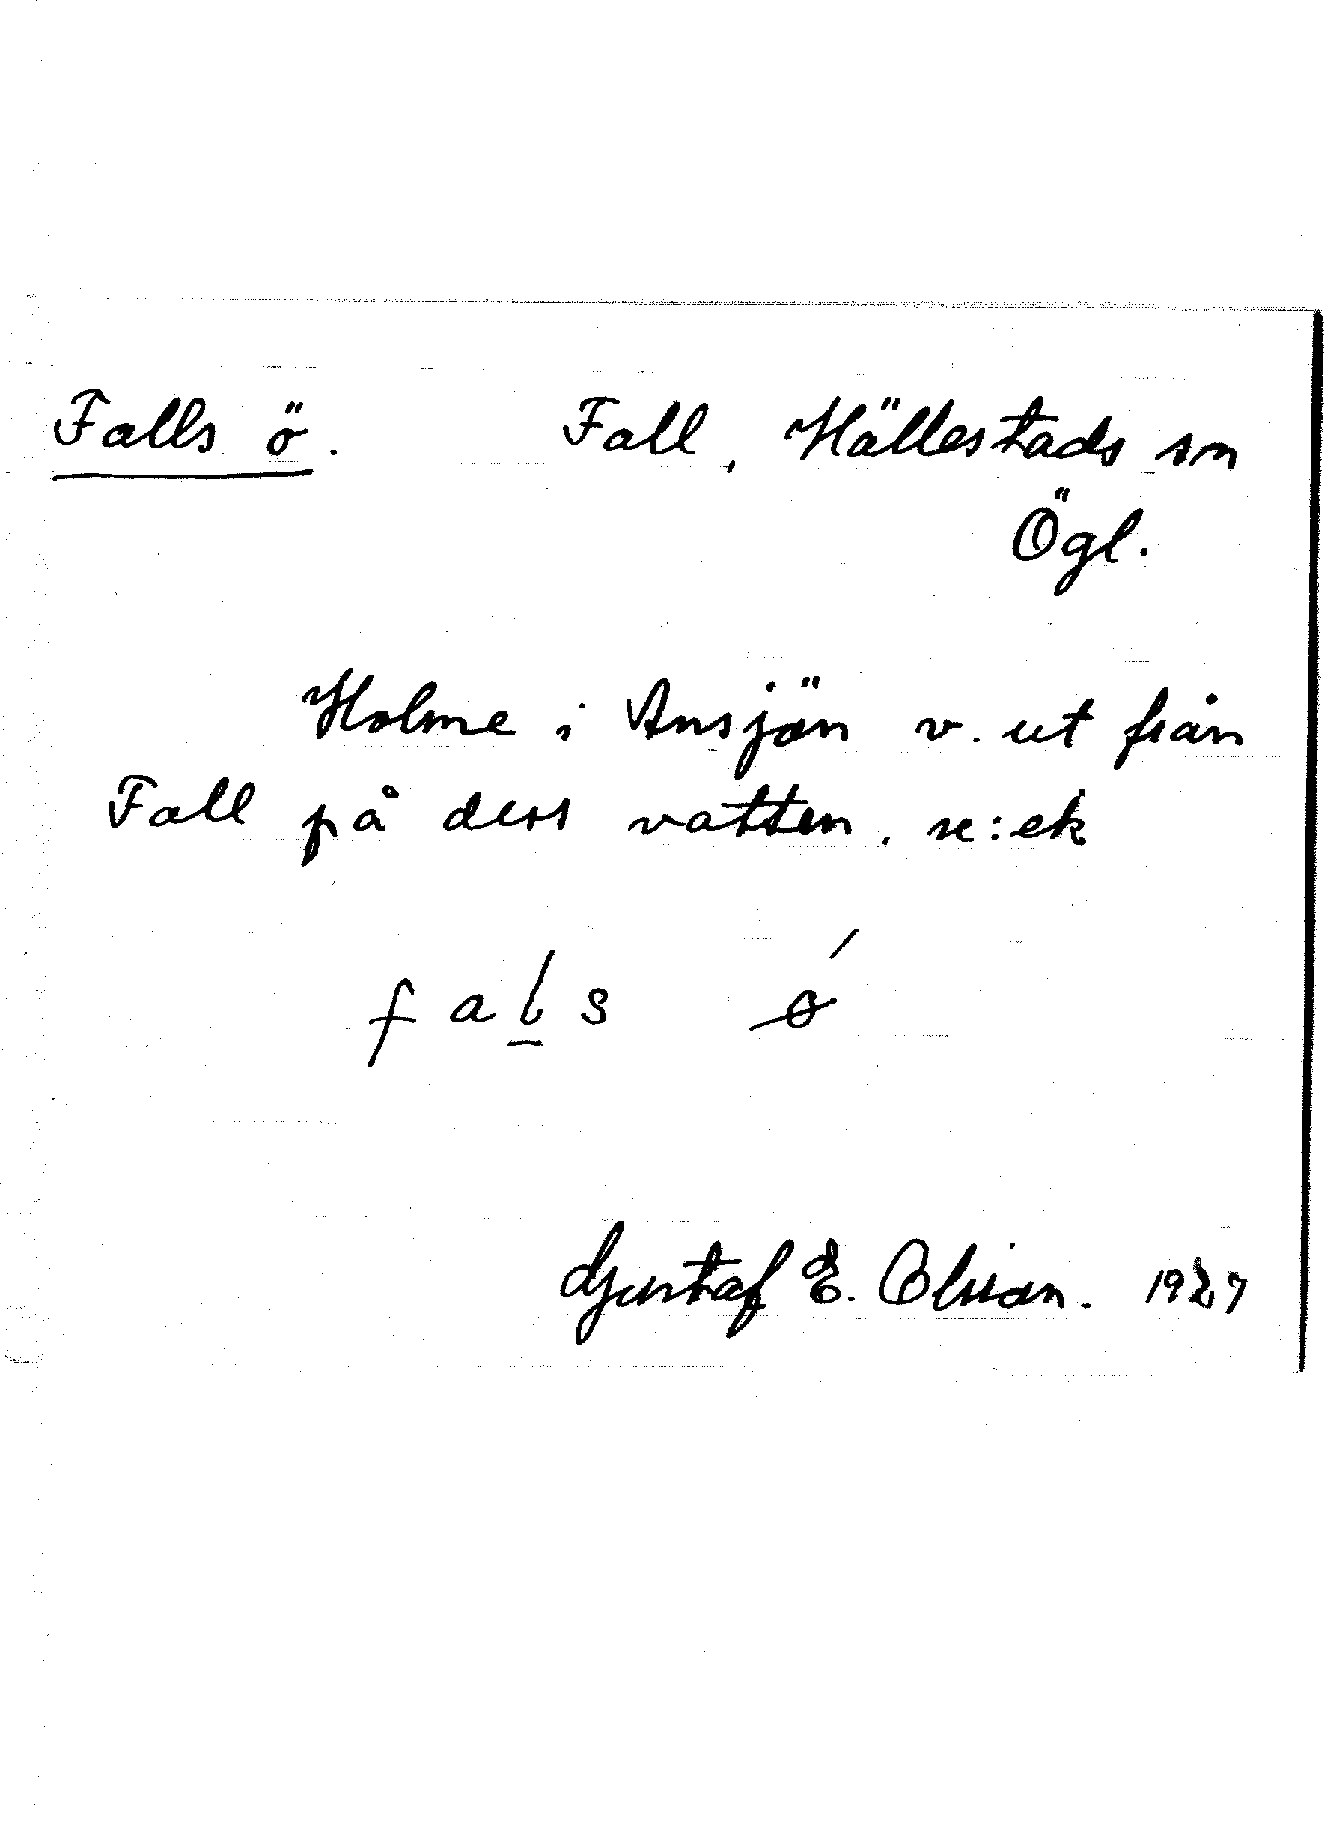 Falls ö. Fall, Hällestads sn
Ögl.
Holme i Ansjön v. ut från
Fall på dess vatten. se: ek
fal̲s ø´
Gustaf E. Olsson. 1927